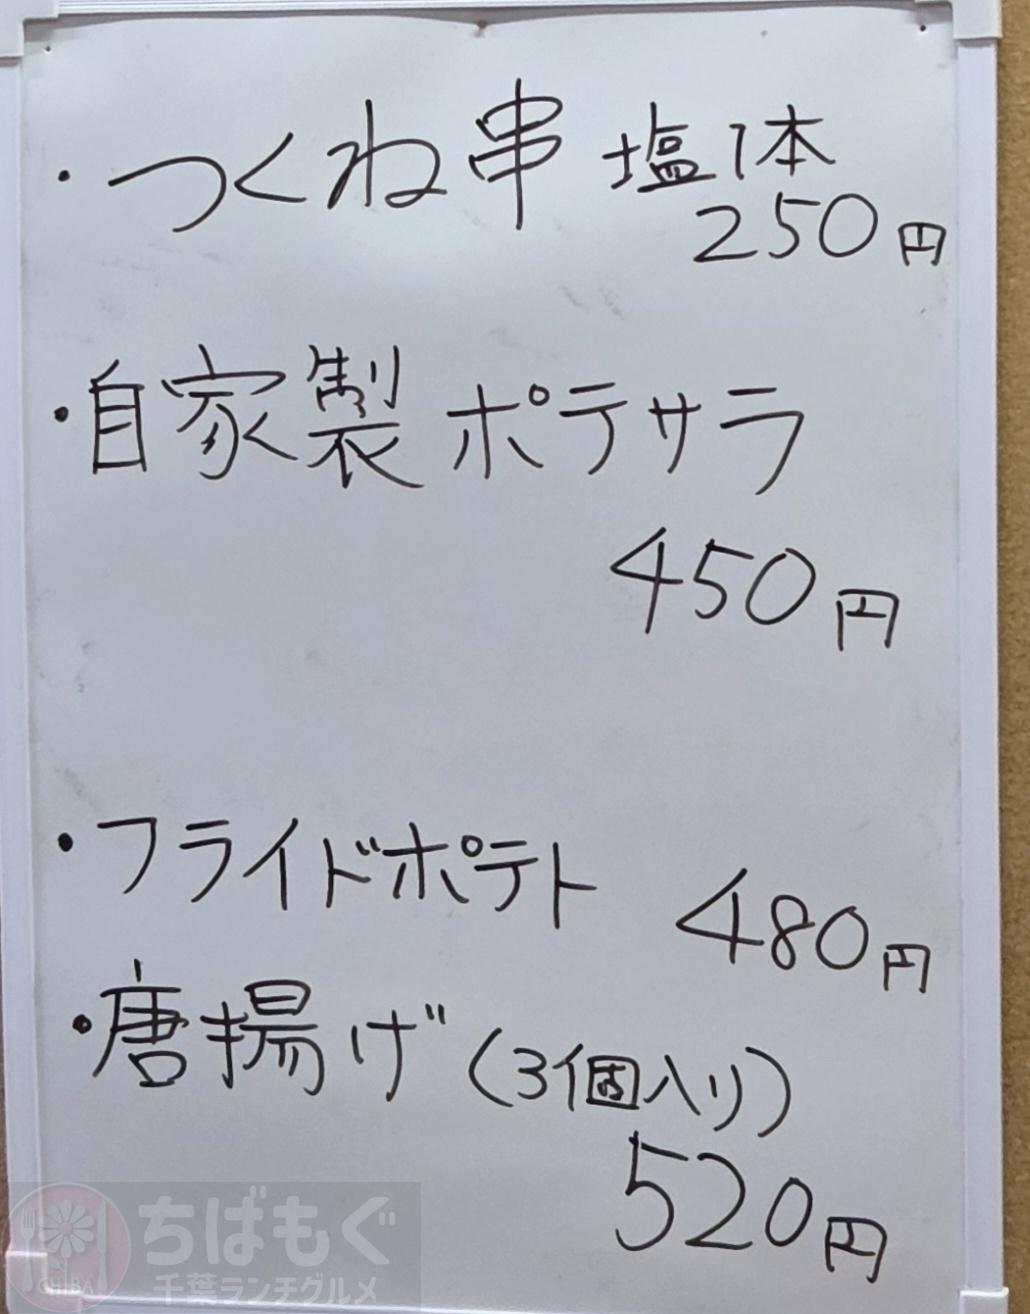 ・つくね串 塩1本
250円
・自家製ポテサラ
450円
・フライドポテト
480円
・唐揚げ(3個入り)
520円
ちばもぐ
千葉ランチグルメ
CHIBA